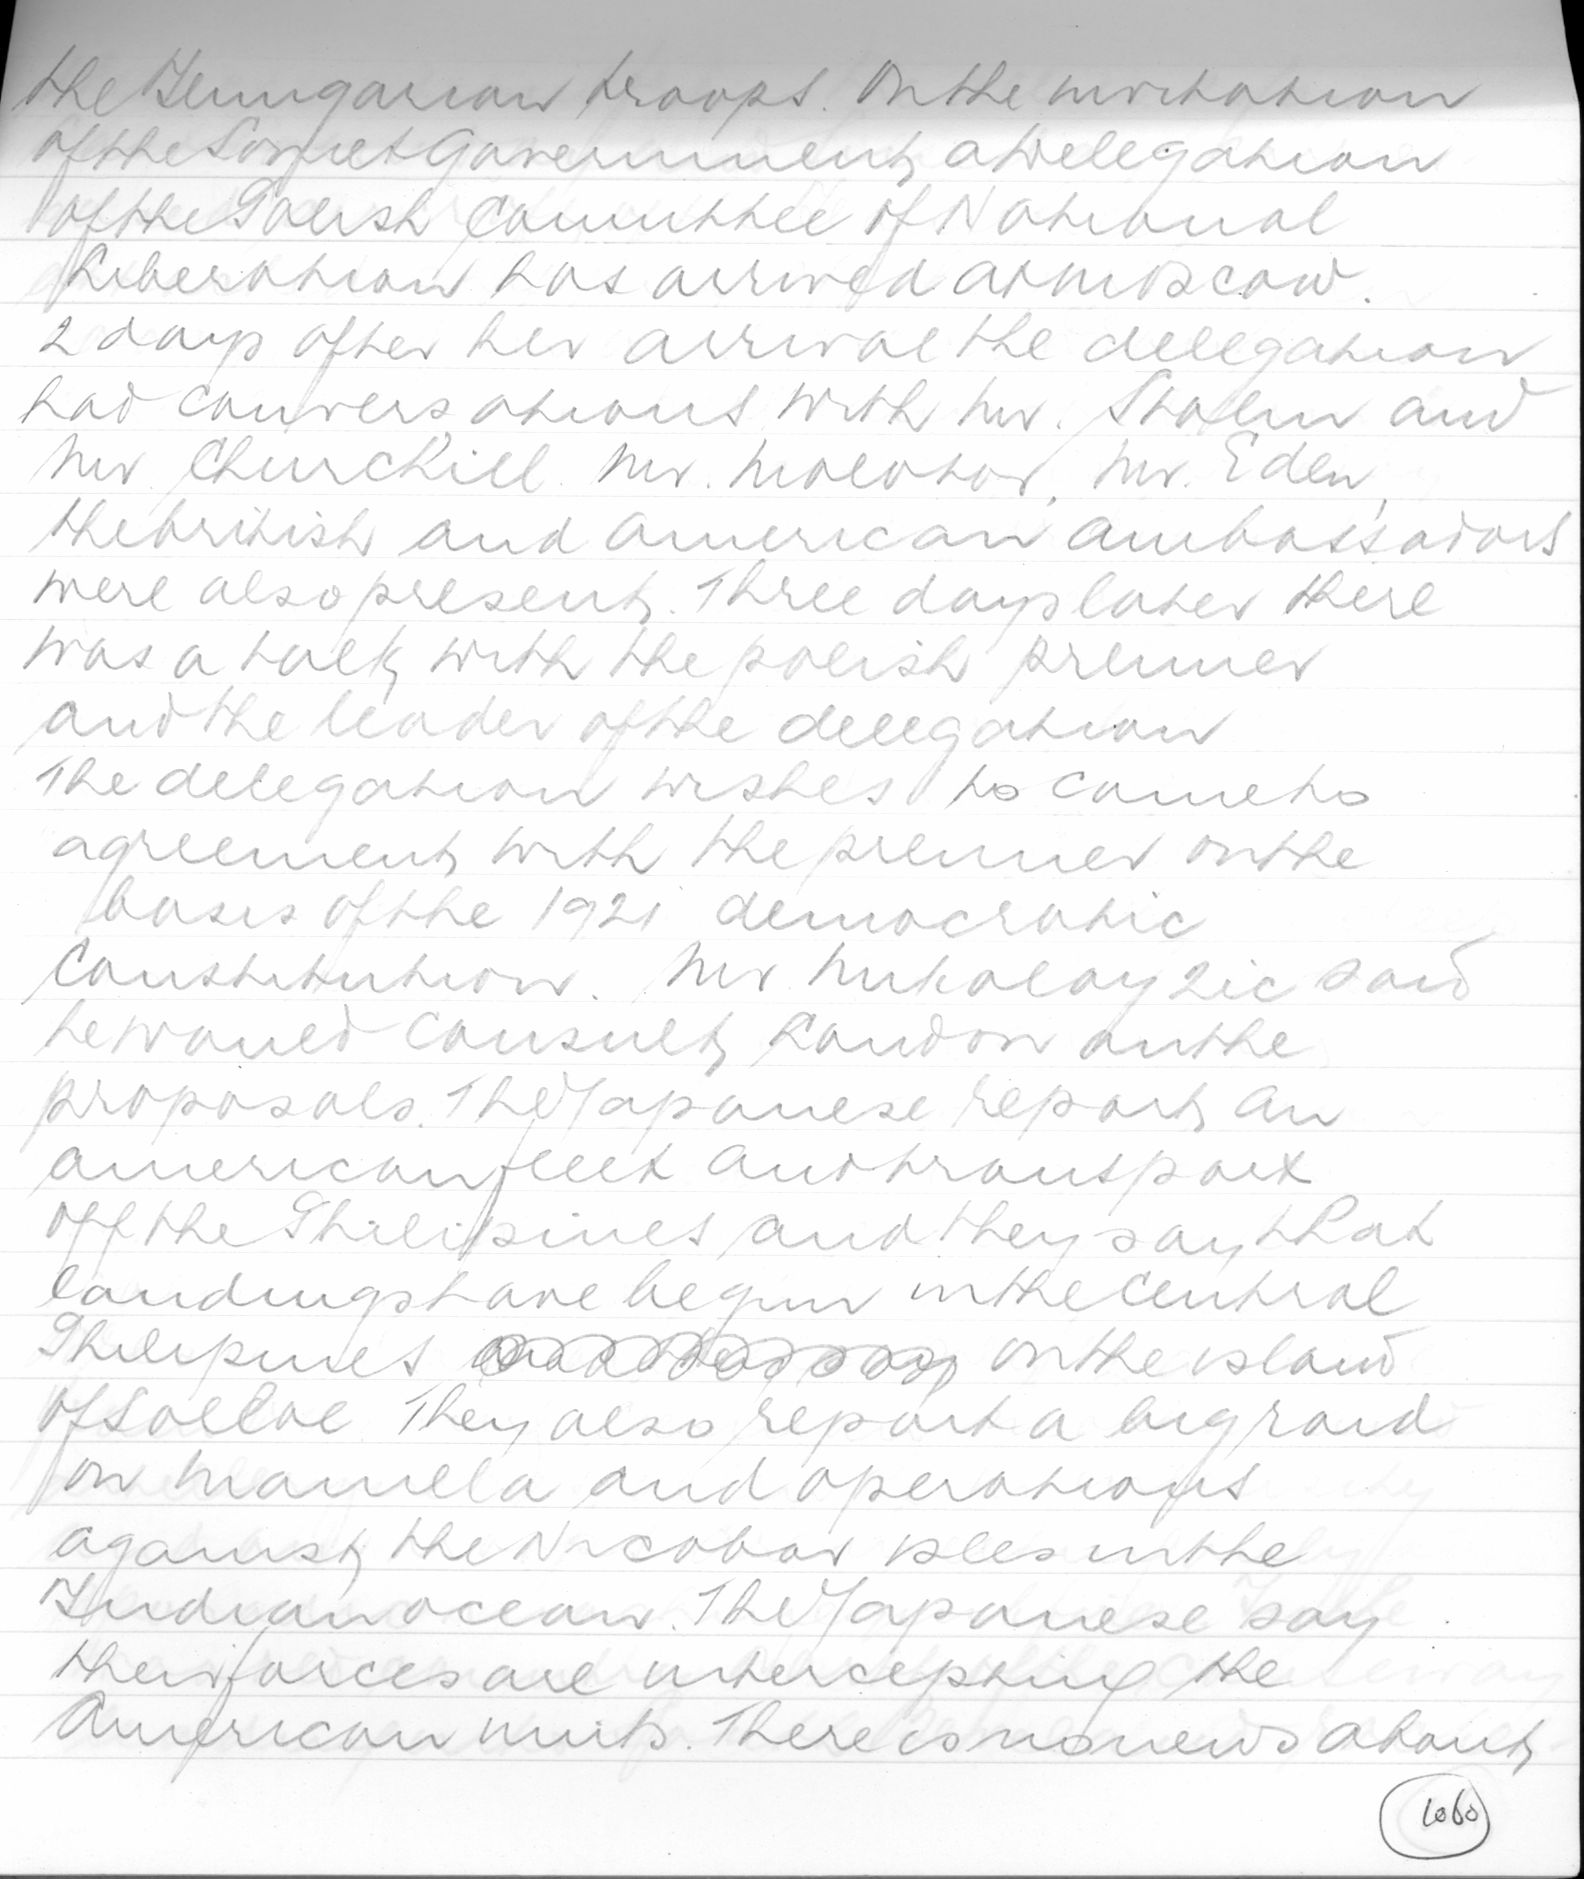 the Hungarian troops. On the invitation
of the Sovjet Government, a delegation
of the Polish Committee of National
Liberation has arrived at Moscow.
2 days after her arrival the delegation
had conversations with Mr. Stalin and
Mr Churchill. Mr. Molotov, Mr. Eden,
the british and american ambassadors
were also present. Three days later there
was a talk with the polish premier
and the leader of the delegation
The delegation wishes to come to
agreement with the premier on the
basis of the 1921 democratic
Constitution. Mr Mikolayzic said
he would consult London on the
proposals. The Japanese report an
american fleet and transport
off the Philipines and they say that
landings have begun in the central
Philipines on the island
of They also report a big raid
on Manella and operations
against the Nicobar isles in the
Indian ocean. The Japanese say
their forces are intercepting the
American units. There is no news about
1060